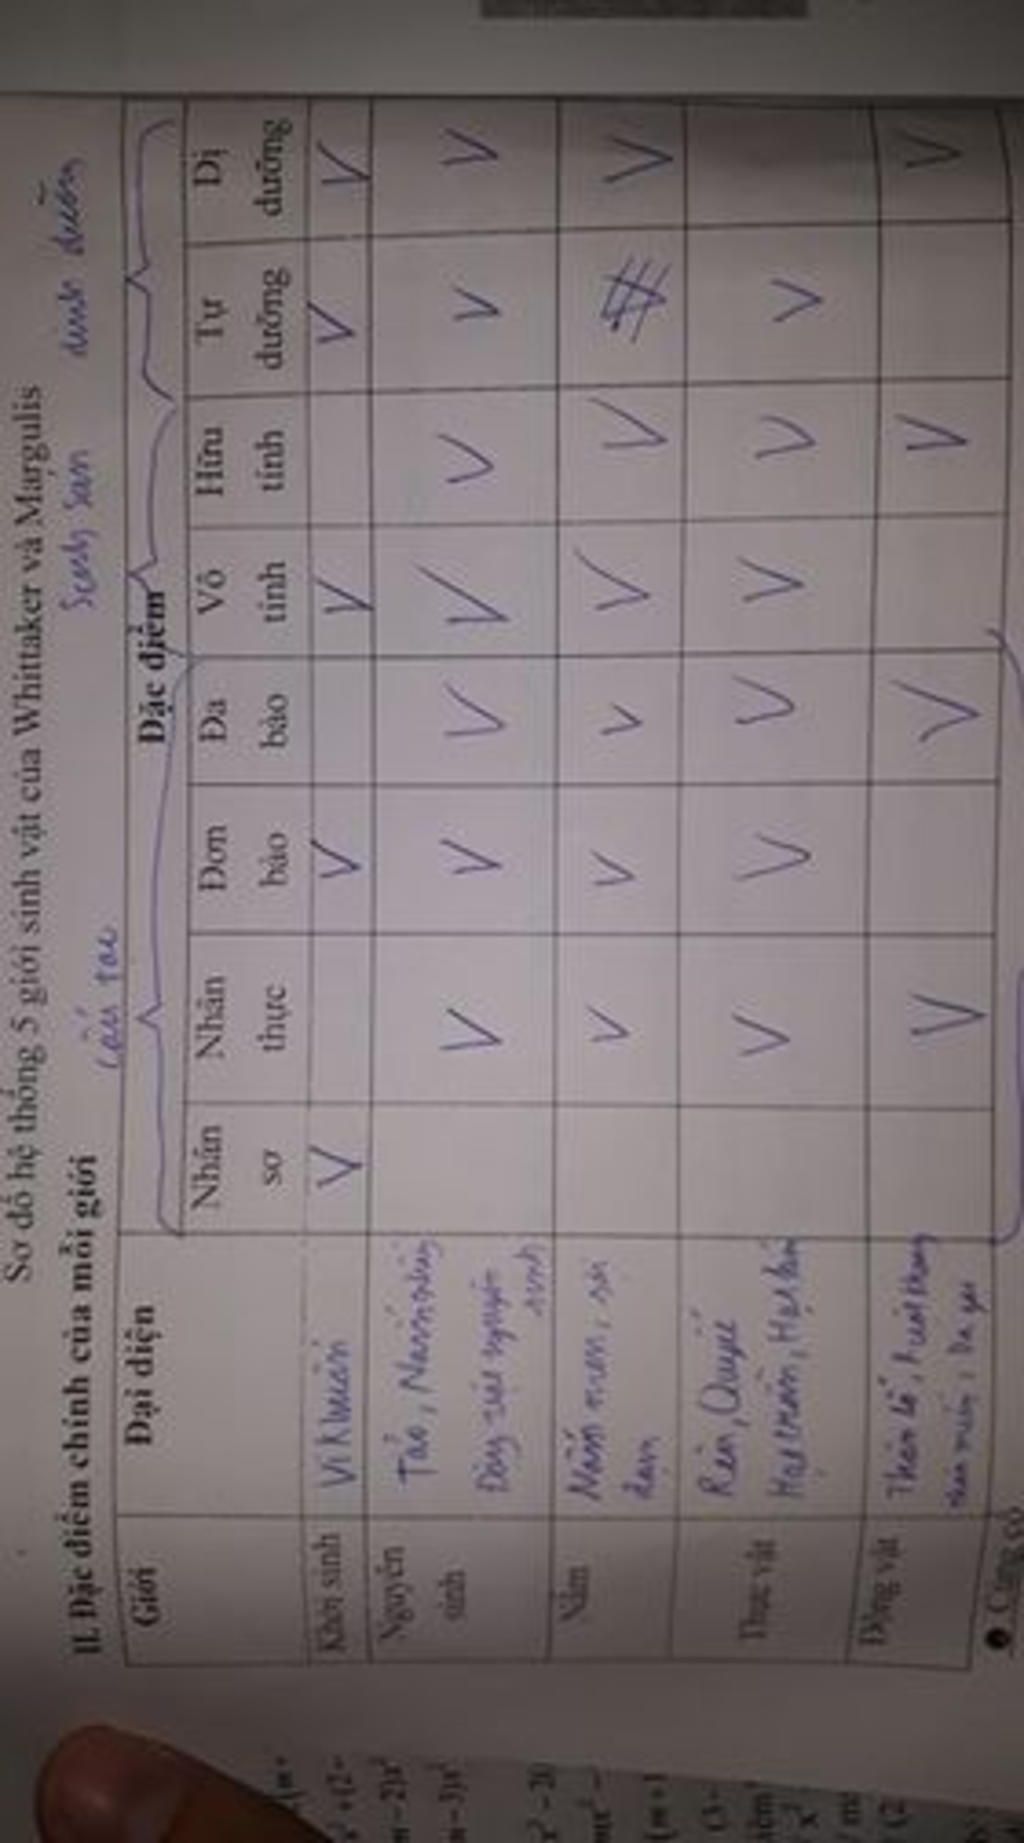 Sơ đồ hệ thống 5 giới sinh vật của Whittaker và Margulis
II. Đặc điểm chính của mỗi giới
cấu tạo
Sinh sản
dinh dưỡng
Giới
Đại diện
Đặc điểm
Nhân sơ
Nhân thực
Đơn bào
Đa bào
Vô tính
Hữu tính
Tự dưỡng
Dị dưỡng
Khởi sinh
Vi khuẩn
V V V V V
Nguyên sinh
Tảo, Nấm nhầy
Động vật nguyên sinh
V V V V V V V
Nấm
Nấm men, sợi
V V V V V V
Thực vật
Rêu, Quyết
Hạt trần, Hạt kín
V V V V V V
Động vật
Thân lỗ, Ruột khoang
thân mềm, Da gai
V V V V
Củng cố